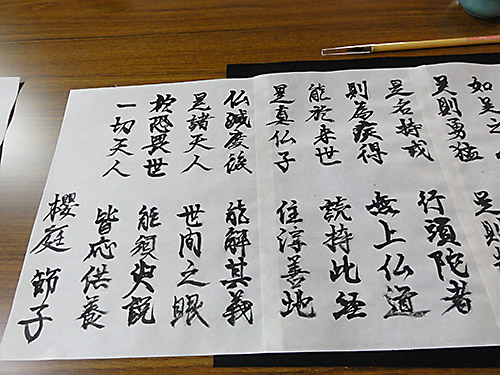 如是之
是則勇猛
是則
是名持戒
行頭陀者
則為疾得
無上仏道
能於来世
読持此経
是真仏子
住淳善地
仏滅度後
能解其義
是諸天人
世間之眼
於恐畏世
能須臾説
一切天人
皆応供養
櫻庭節子